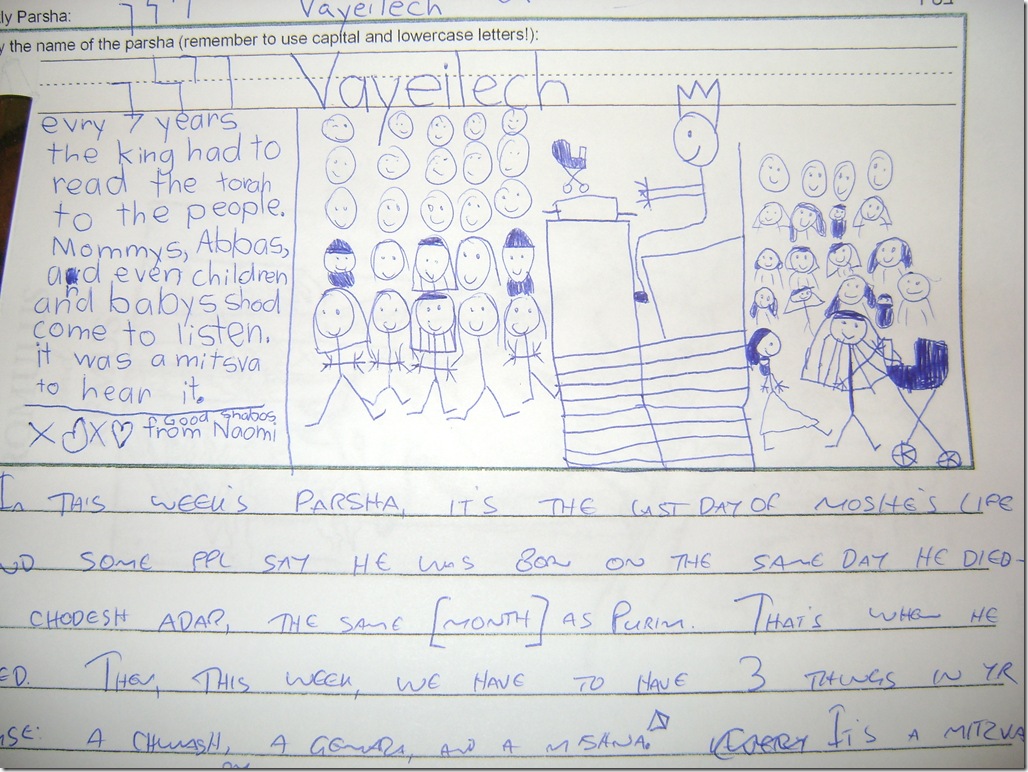 ly Parsha: ילך Vayeilech
y the name of the parsha (remember to use capital and lowercase letters!):
ילך Vayeilech
evry 7 years
the king had to
read the torah
to the people.
Mommys, Abbas,
and even children
and babys shod
come to listen.
it was a mitsva
to hear it.
Good Shabos
X O X ♡ from Naomi
In THIS WEEK'S PARSHA, IT'S THE LAST DAY OF MOSHE'S LIFE
ND SOME PPL SAY HE WAS BORN ON THE SAME DAY HE DIED-
CHODESH ADAR, THE SAME [MONTH] AS PURIM. THAT'S WHEN HE
ED. THEN, THIS WEEK, WE HAVE TO HAVE 3 THINGS IN YR
SE: A CHUMASH, A GEMARA, AND A MISHNA. IT'S A MITZVA